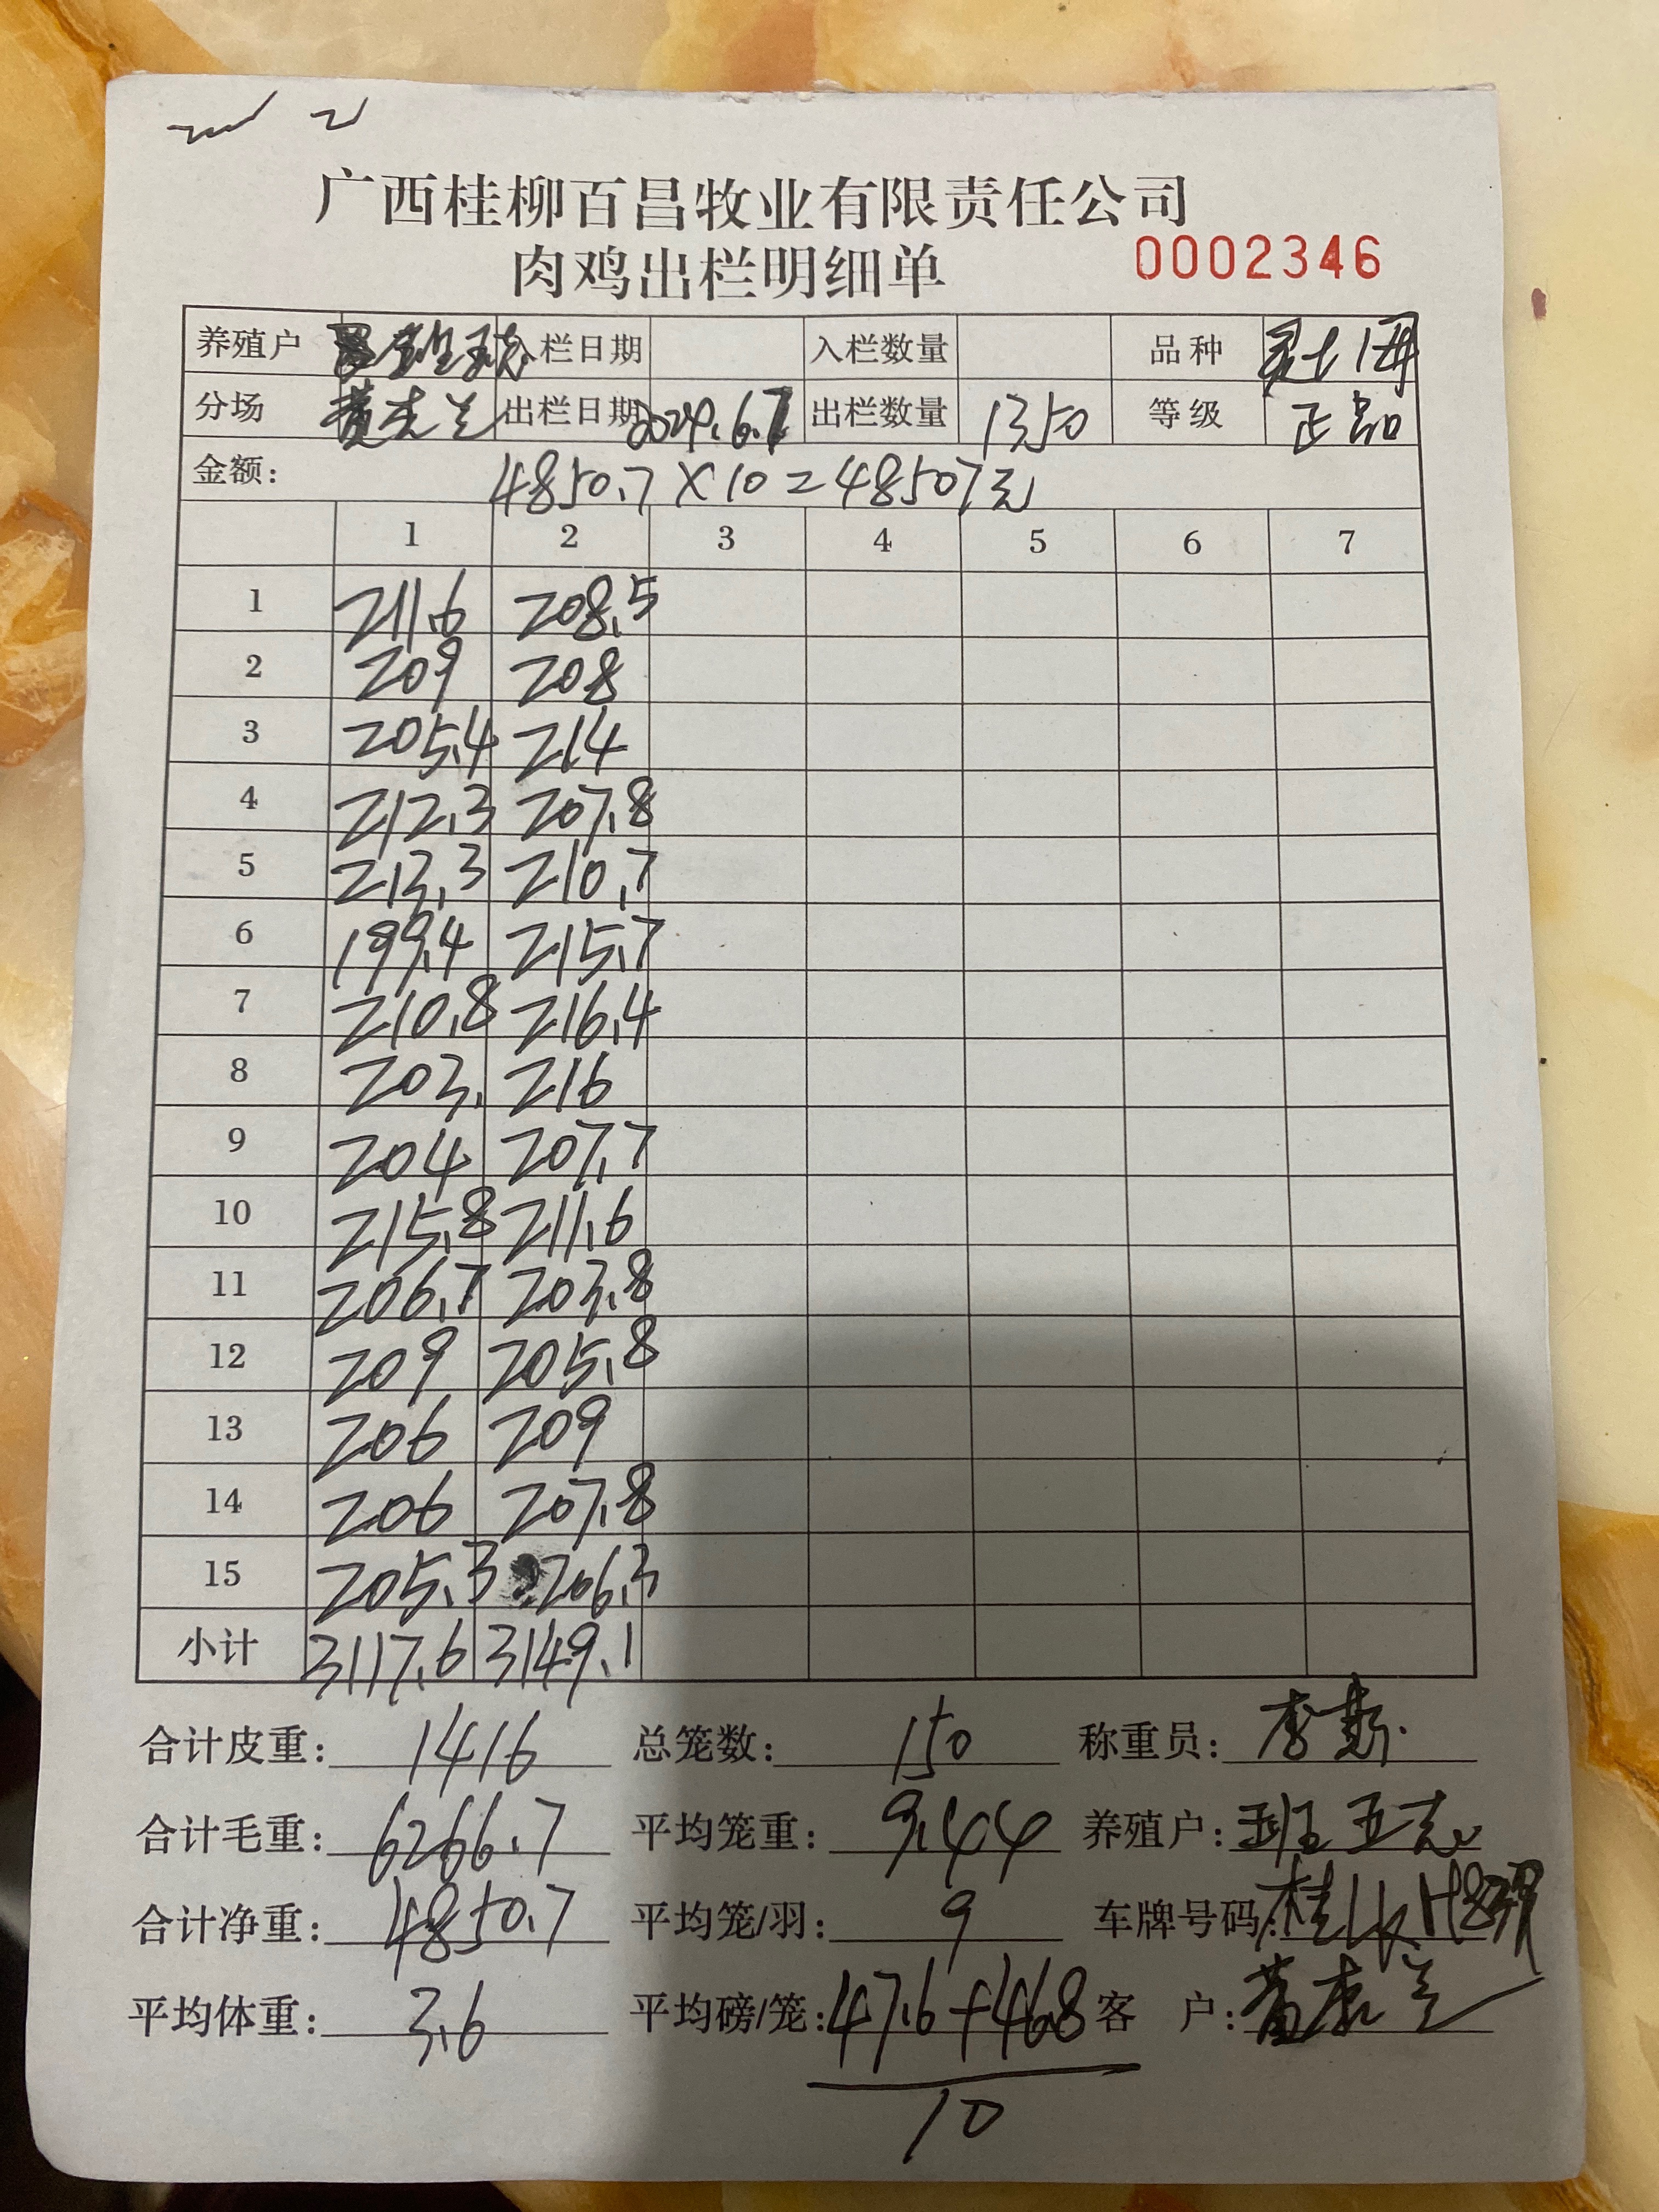 广西桂柳百昌牧业有限责任公司
肉鸡出栏明细单 0002346
养殖户 入栏日期 入栏数量 品种
分场 出栏日期 2024.6.7 出栏数量 1350 等级 正品
金额: 4850.7×10=48507元
1 2 3 4 5 6 7
1 211.6 208.5
2 209 208
3 205.4 214
4 212.3 207.8
5 213.3 210.7
6 199.4 215.7
7 210.8 216.4
8 203. 216
9 204 207.7
10 215.8 211.6
11 206.7 203.8
12 209 205.8
13 206 209
14 206 207.8
15 205.3 206.3
小计 3117.6 3149.1
合计皮重: 1416 总笼数: 150 称重员:
合计毛重: 6266.7 平均笼重: 9.44 养殖户: 班五志
合计净重: 4850.7 平均笼/羽: 9 车牌号码:
平均体重: 3.6 平均磅/笼: 47.6+46.8 客 户:
10